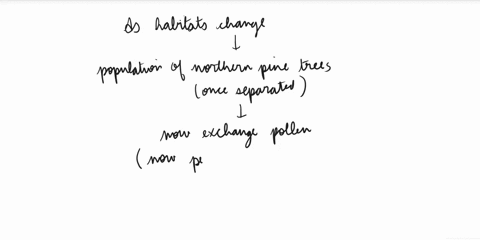 As habitats change
↓
population of northern pine trees
(once separated)
↓
now exchange pollen
(now pe